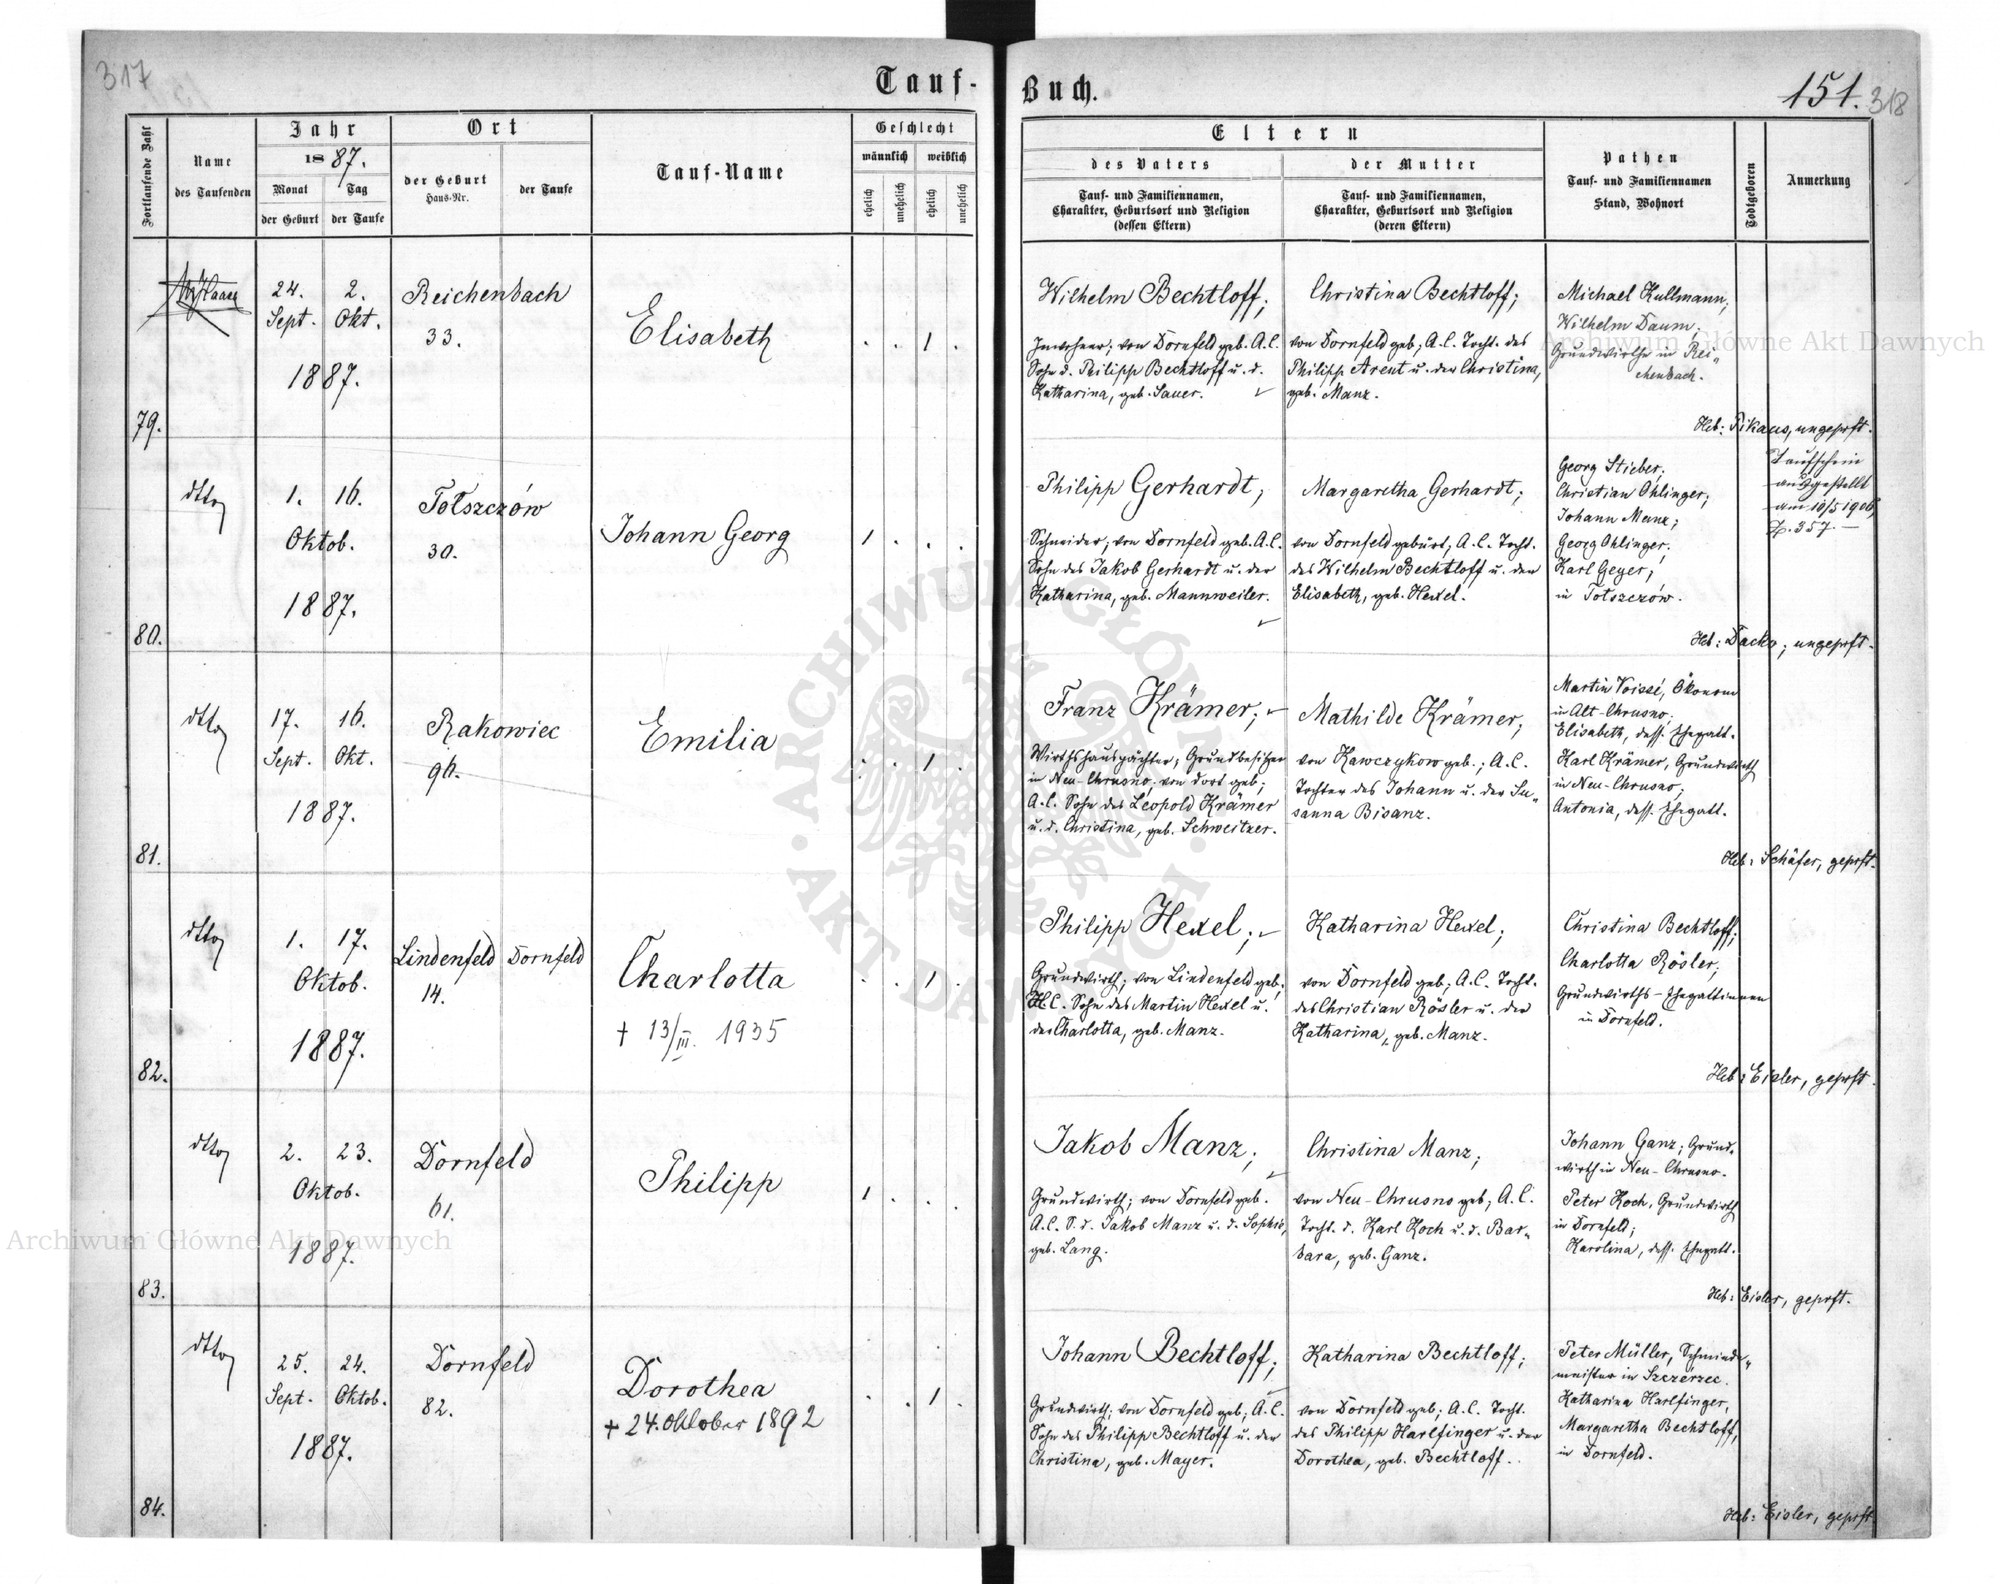 317
Tauf-
Buch.
151.
318
Fortlaufende Zahl
Name
des Taufenden
Jahr
1887.
Monat
Tag
der Geburt
der Taufe
Ort
der Geburt
Haus-Nr.
der Taufe
Tauf-Name
Geschlecht
männlich
weiblich
ehelich
unehelich
ehelich
unehelich
Eltern
des Vaters
Tauf- und Familiennamen,
Charakter, Geburtsort und Religion
(dessen Eltern)
der Mutter
Tauf- und Familiennamen,
Charakter, Geburtsort und Religion
(deren Eltern)
Pathen
Tauf- und Familiennamen
Stand, Wohnort
Todtgeboren
Anmerkung
79.
24. 2.
Sept. Okt.
1887.
Reichenbach
33.
Elisabeth
. . 1 .
Wilhelm Bechtloff;
Inwohner; von Dornfeld geb. A.C.
Sohn d. Philipp Bechtloff u. d.
Katharina, geb. Sauer.
Christina Bechtloff;
von Dornfeld geb; A.C. Tocht. des
Philipp Arent u. der Christina,
geb. Manz.
Michael Kullmann;
Wilhelm Daum;
Grundwirthe in Rei-
chenbach.
Heb: Pikaus, ungeprft.
80.
dtto
1. 16.
Oktob.
1887.
Tołszczów
30.
Johann Georg
1 . . .
Philipp Gerhardt;
Schneider; von Dornfeld geb. A.C.
Sohn des Jakob Gerhardt u. der
Katharina, geb. Mannweiler.
Margaretha Gerhardt;
von Dornfeld gebürt; A.C. Tocht.
des Wilhelm Bechtloff u. der
Elisabeth, geb. Hexel.
Georg Stieber;
Christian Ohlinger;
Johann Manz;
Georg Ohlinger;
Karl Geyer;
in Tołszczów.
Taufschein
ausgestellt
am 10/5 1906
Z. 357.—
Heb: Dacko; ungeprft.
81.
dtto
17. 16.
Sept. Okt.
1887.
Rakowiec
96.
Emilia
. . 1 .
Franz Krämer;
Wirthshauspächter; Grundbesitzer
in Neu-Chrusno; von dort geb;
A.C. Sohn des Leopold Krämer
u. d. Christina, geb. Schweitzer.
Mathilde Krämer;
von Kawczykow geb.; A.C.
Tochter des Johann u. der Su-
sanna Bisanz.
Martin Voissé, Ökonom
in Alt-Chrusno;
Elisabeth, dess. Ehegatt.
Karl Krämer, Grundwirth
in Neu-Chrusno;
Antonia, dess. Ehegatt.
Heb: Schäfer, geprft.
82.
dtto
1. 17.
Oktob.
1887.
Lindenfeld Dornfeld
14.
Charlotta
† 13/III. 1935
. . 1 .
Philipp Hexel;
Grundwirth; von Lindenfeld geb;
H.C. Sohn des Martin Hexel u.
der Charlotta, geb. Manz.
Katharina Hexel;
von Dornfeld geb; A.C. Tocht.
des Christian Rösler u. der
Katharina, geb. Manz.
Christina Bechtloff;
Charlotta Rösler;
Grundwirths-Ehegattinnen
in Dornfeld.
Heb: Eisler, geprft.
83.
dtto
2. 23.
Oktob.
1887.
Dornfeld
61.
Philipp
1 . . .
Jakob Manz;
Grundwirth; von Dornfeld geb.
A.C. S.d. Jakob Manz u. d. Sophie,
geb. Lang.
Christina Manz;
von Neu-Chrusno geb; A.C.
Tocht. d. Karl Koch u. d. Bar-
bara, geb. Ganz.
Johann Ganz; Grund-
wirth in Neu-Chrusno.
Peter Koch, Grundwirth
in Dornfeld;
Karolina, dess. Ehegatt.
Heb: Eisler, geprft.
84.
dtto
25. 24.
Sept. Oktob.
1887.
Dornfeld
82.
Dorothea
† 24. Oktober 1892
. . 1 .
Johann Bechtloff;
Grundwirth; von Dornfeld geb; A.C.
Sohn des Philipp Bechtloff u. der
Christina, geb. Mayer.
Katharina Bechtloff;
von Dornfeld geb; A.C. Tocht.
des Philipp Harlfinger u. der
Dorothea, geb. Bechtloff.
Peter Müller, Schmiede-
meister in Szczerzec.
Katharina Harlfinger,
Margaretha Bechtloff,
in Dornfeld.
Heb: Eisler, geprft.
Archiwum Główne Akt Dawnych
Archiwum Główne Akt Dawnych
ARCHIWUM GŁÓWNE · AKT DAWNYCH ·